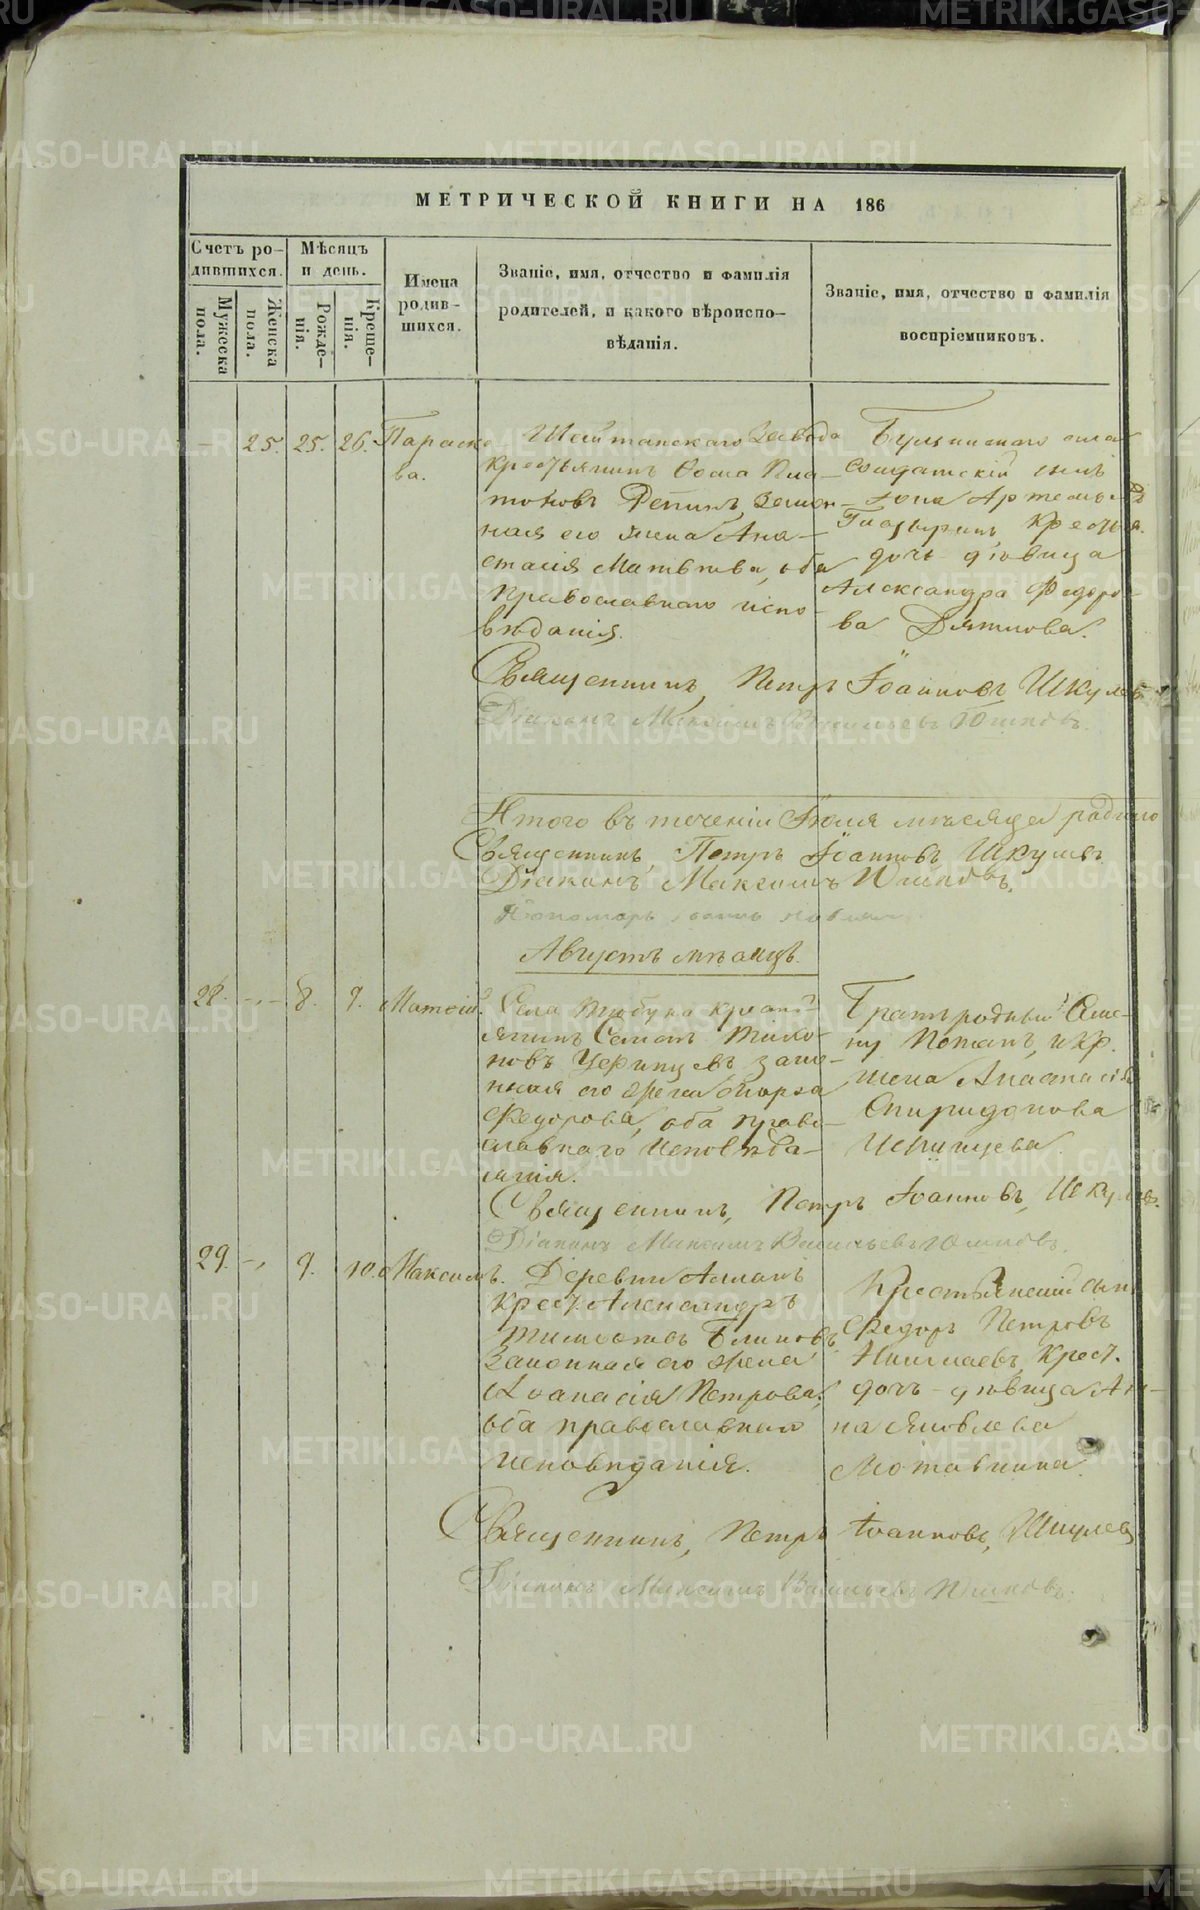 МЕТРИЧЕСКОЙ КНИГИ НА 186
Счетъ ро-
дившихся.
Мужеска пола.
Женска пола.
Мѣсяцъ
и день.
Рожде-
нія.
Креще-
нія.
Имена
родив-
шихся.
Званіе, имя, отчество и фамилія
родителей, и какого вѣроиспо-
вѣданія.
Званіе, имя, отчество и фамилія
воспріемниковъ.
25. 25. 26. Параске
ва.
Шайтанскаго Завода
крестьянинъ Ѳома Пла-
тоновъ Репинъ, Закон-
ная его жена Ана-
стасія Матвѣева, оба
православнаго испо-
вѣданія.
солдатскій сынъ
Артемьевъ
дочь дѣвица
Александра Федоро-
ва Дятлова.
Священникъ, Петръ Іоанновъ Шкулевъ
Діаконъ Максимъ Васильевъ Юшковъ.
Итого въ теченіи Іюля мѣсяца родило
Священникъ, Петръ Іоанновъ, Шкулевъ
Діаконъ Максимъ Юшковъ.
Пономарь
Августъ мѣсяцъ.
28. -,- 8. 9. Матѳій.
Села Тюбука крестъ-
янинъ Тихо-
новъ закон-
ная его жена Марѳа
Федорова, оба право-
славнаго исповѣда-
нія.
Братъ родный Семе-
ну Потапъ, и кр.
жена Анастасія
Спиридонова
Священникъ, Петръ Іоанновъ, Шкулевъ.
Діаконъ Максимъ Васильевъ Юшковъ.
29. -, 9. 10. Максимъ.
Деревни
Крест. Александръ
Тимоѳеевъ Блиновъ,
Законная его жена
Аѳанасія Петрова,
оба православнаго
исповѣданія.
Крестьянскій сынъ
Федоръ Петровъ
крест.
дочь - дѣвица Ан-
на Яковлева
Священникъ, Петръ Іоанновъ, Шкулевъ
Діаконъ Максимъ Васильевъ Юшковъ.
METRIKI.GASO-URAL.RU